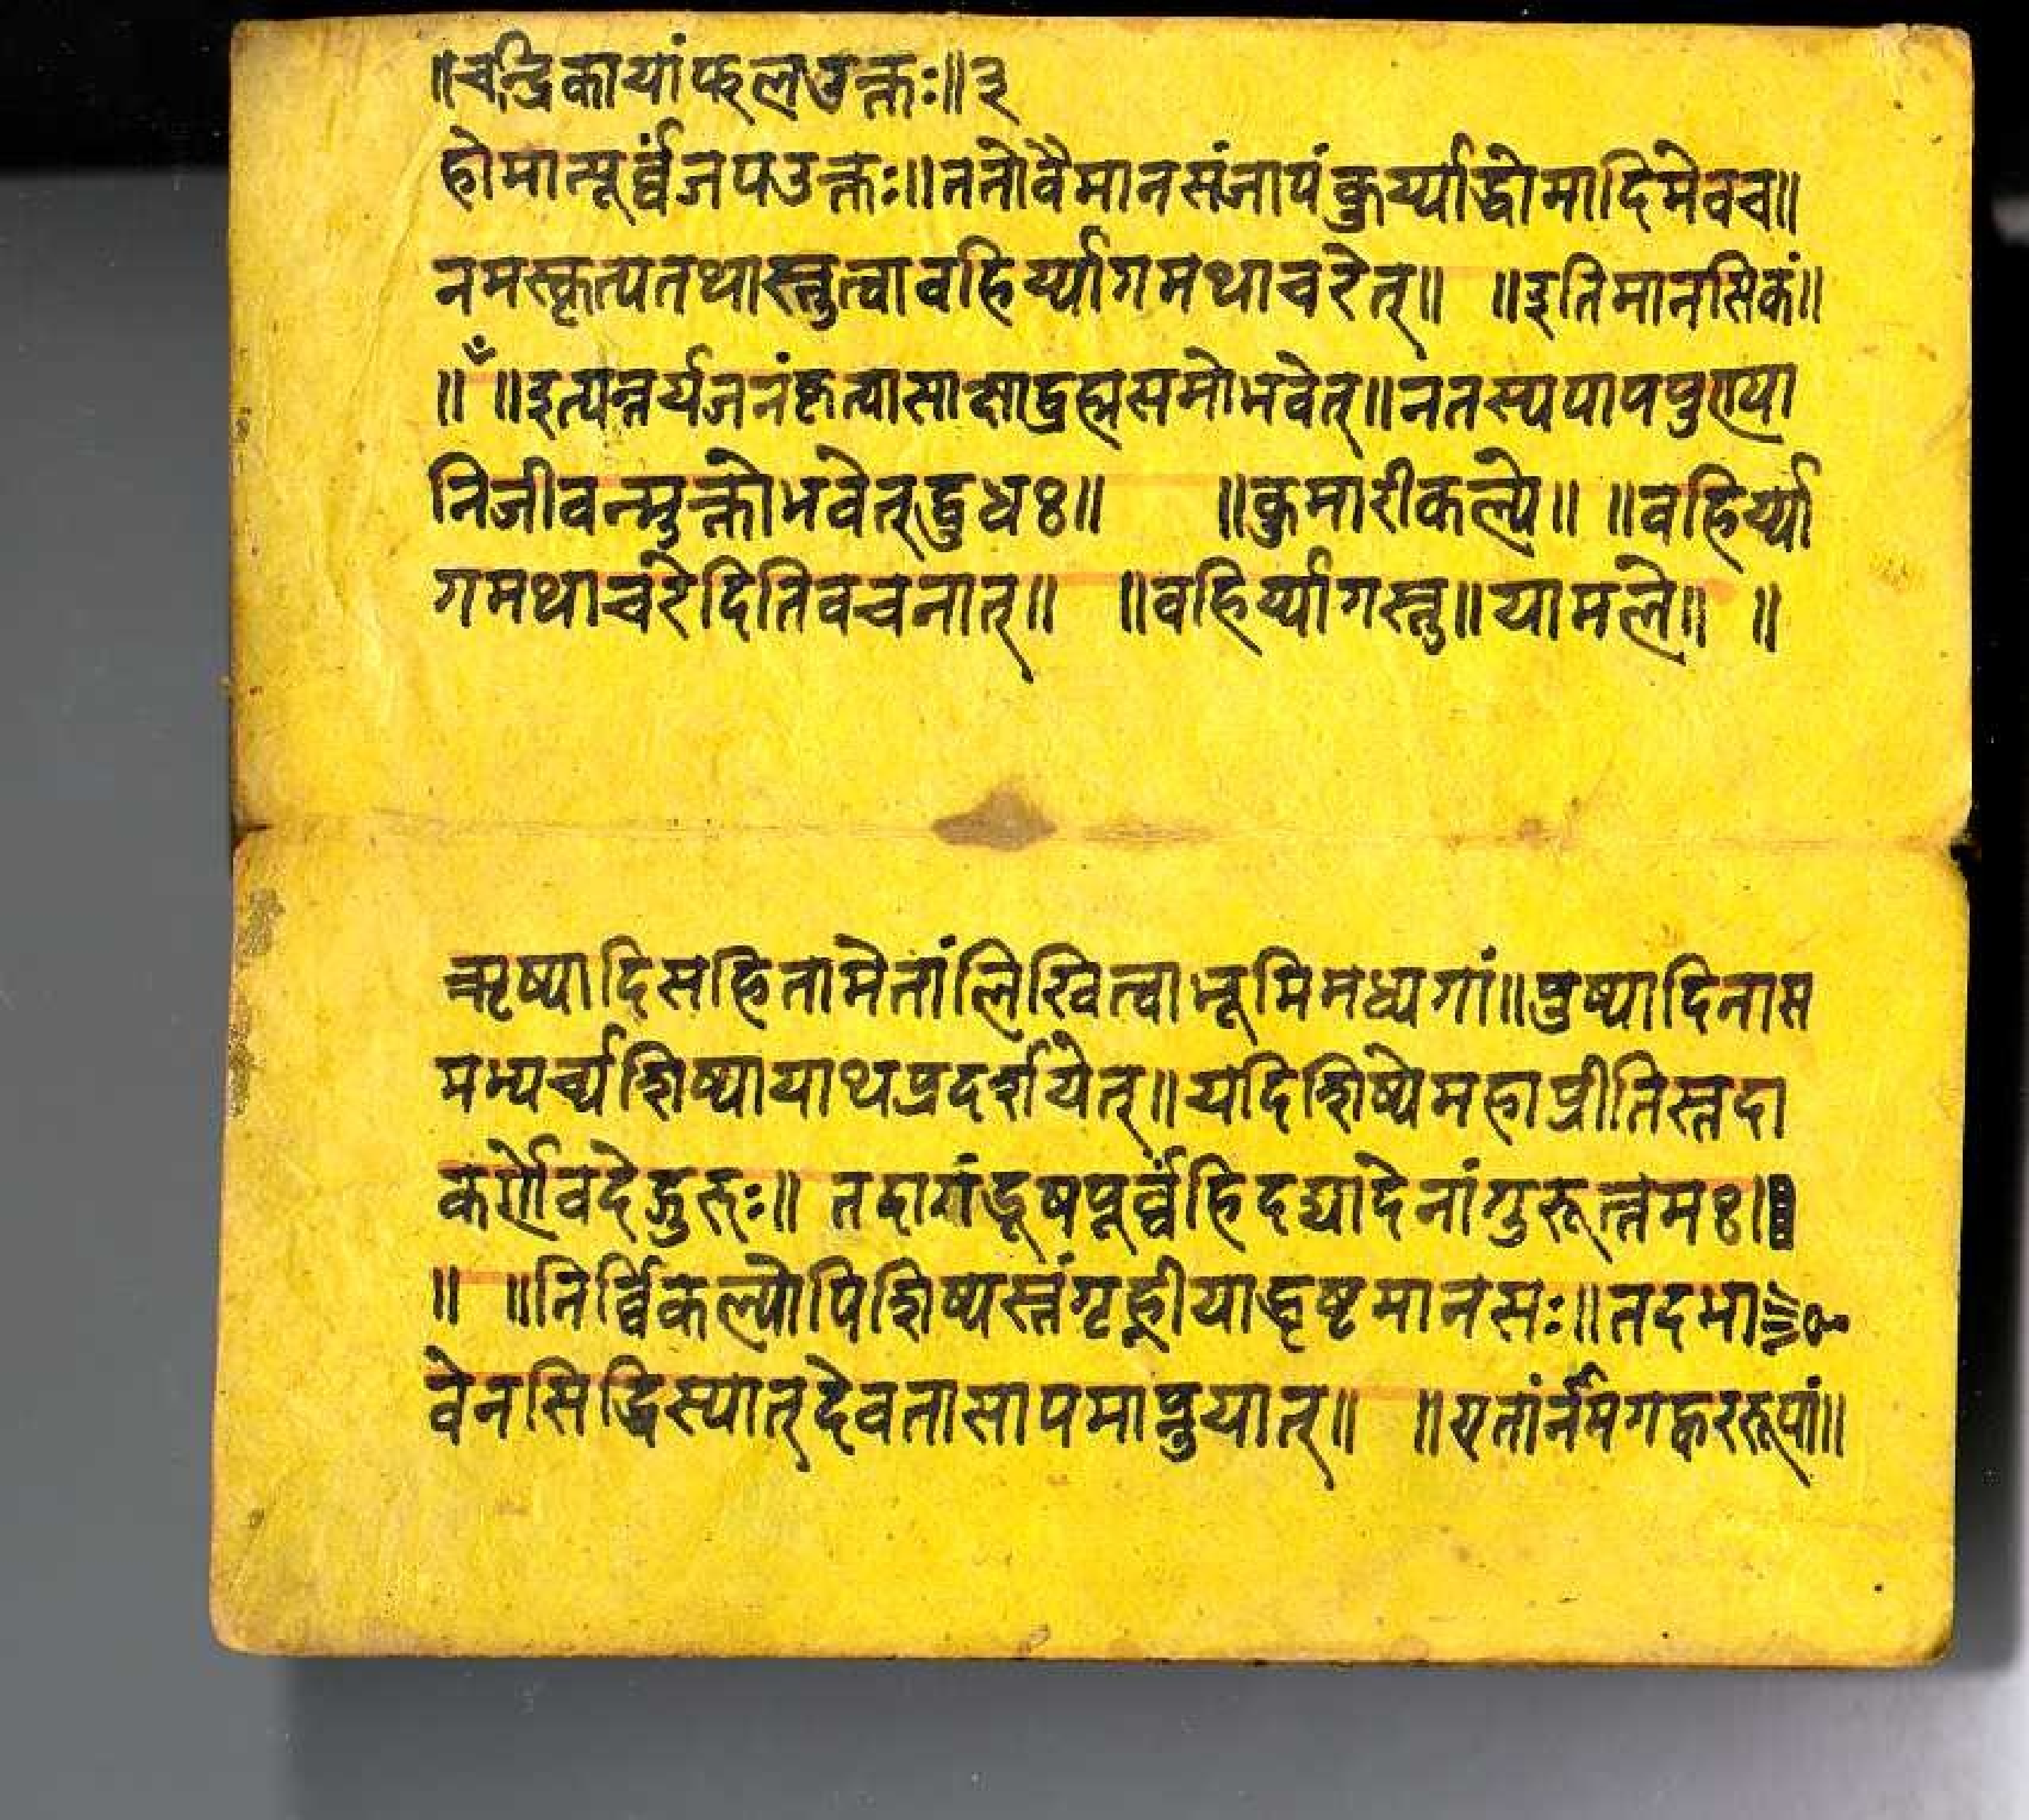 ॥चन्द्रिकायांफलउक्तः॥३
होमात्पूर्व्वंजपउक्तः॥ततोवैमानसंजापंकुर्य्याद्धोमादिमेवच॥
नमस्कृत्यतथास्तुत्वावहिर्य्यागमथाचरेत्॥ ॥इतिमानसिकं॥
॥ ँ ॥इत्यन्तर्यजनंकृत्वासाक्षाद्ब्रह्मसमोभवेत्॥नतस्यपापपुण्या
निजीवन्मुक्तोभवेत्द्बुधः॥ ॥कुमारीकल्पे॥ ॥वहिर्य्या
गमथाचरेदितिवचनात्॥ ॥वहिर्य्यागस्तु॥यामले॥ ॥
ऋष्यादिसहितामेतांलिखित्वाभूमिमध्यगां॥पुष्पादिनास
मभ्यर्च्यशिष्यायाथप्रदर्शयेत्॥यदिशिष्येमहाप्रीतिस्तदा
कर्णेवदेद्गुरुः॥ तदागंडूषपूर्व्वंहिदद्यादेनांगुरूत्तमः॥
॥ ॥निर्व्विकल्पोपिशिष्यस्तंगृह्णीयाद्धृष्टमानसः॥तदभा
वेनसिद्धिस्यात्देवतासापमाप्नुयात्॥ ॥एतांर्नमगह्वररूपां॥